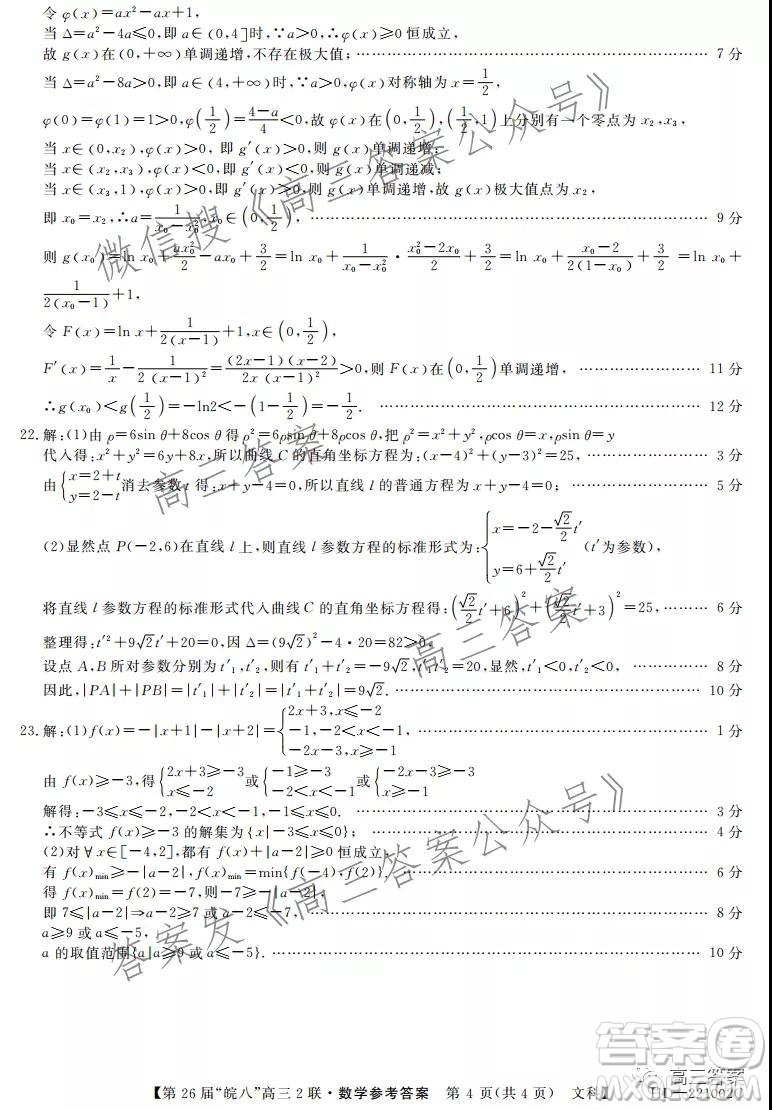 令 φ(x)=ax²-ax+1,
当 Δ=a²-4a⩽0,即 a∈(0,4]时,∵a>0,∴φ(x)⩾0 恒成立,
故 g(x)在(0,+∞)单调递增,不存在极大值; …… 7 分
当 Δ=a²-8a>0,即 a∈(4,+∞)时,∵a>0,∴φ(x)对称轴为 x=1/2,
φ(0)=φ(1)=1>0,φ(1/2)=(4-a)/4<0,故 φ(x)在(0,1/2),(1/2,1)上分别有一个零点为 x₂,x₃,
当 x∈(0,x₂),φ(x)>0,即 g′(x)>0,则 g(x)单调递增;
当 x∈(x₂,x₃),φ(x)<0,即 g′(x)<0,则 g(x)单调递减;
当 x∈(x₃,1),φ(x)>0,即 g′(x)>0,则 g(x)单调递增,故 g(x)极大值点为 x₂,
即 x₀=x₂,∴a=1/(x₀-x₀²),x₀∈(0,1/2), …… 9 分
则 g(x₀)=ln x₀+ax₀²/2-ax₀+3/2=ln x₀+1/(x₀-x₀²)·(x₀²-2x₀)/2+3/2=ln x₀+(x₀-2)/(2(1-x₀))+3/2=ln x₀+
1/(2(x₀-1))+1,
令 F(x)=ln x+1/(2(x-1))+1,x∈(0,1/2),
F′(x)=1/x-1/(2(x-1)²)=(2x-1)(x-2)/(2x(x-1)²)>0,则 F(x)在(0,1/2)单调递增, …… 11 分
∴g(x₀)<g(1/2)=-ln2<-(1-1/2)=-1/2. …… 12 分
22.解:(1)由 ρ=6sin θ+8cos θ 得 ρ²=6ρsin θ+8ρcos θ,把 ρ²=x²+y²,ρcos θ=x,ρsin θ=y
代入得:x²+y²=6y+8x,所以曲线 C 的直角坐标方程为:(x-4)²+(y-3)²=25, …… 3 分
由{x=2+t y=2-t 消去参数 t 得:x+y-4=0,所以直线 l 的普通方程为 x+y-4=0; …… 5 分
(2)显然点 P(-2,6)在直线 l 上,则直线 l 参数方程的标准形式为:{x=-2-√2/2 t′ y=6+√2/2 t′ (t′为参数),
将直线 l 参数方程的标准形式代入曲线 C 的直角坐标方程得:(√2/2 t′+6)²+(√2/2 t′+3)²=25, …… 6 分
整理得:t′²+9√2t′+20=0,因 Δ=(9√2)²-4·20=82>0,
设点 A,B 所对参数分别为 t′₁,t′₂,则有 t′₁+t′₂=-9√2,t′₁t′₂=20,显然,t′₁<0,t′₂<0, …… 8 分
因此,|PA|+|PB|=|t′₁|+|t′₂|=9√2. …… 10 分
23.解:(1)f(x)=-|x+1|-|x+2|={2x+3,x⩽-2 -1,-2<x<-1 -2x-3,x⩾-1 …… 1 分
由 f(x)⩾-3,得{2x+3⩾-3 x⩽-2 或{-1⩾-3 -2<x<-1 或{-2x-3⩾-3 x⩾-1
解得:-3⩽x⩽-2,-2<x<-1,-1⩽x⩽0. …… 3 分
∴不等式 f(x)⩾-3 的解集为{x|-3⩽x⩽0}; …… 4 分
(2)对∀x∈[-4,2],都有 f(x)+|a-2|⩾0 恒成立,
有 f(x)min⩾-|a-2|,f(x)min=min{f(-4),f(2)}. …… 6 分
得 f(x)min=f(2)=-7,则-7⩾-|a-2|,
即 7⩽|a-2|⇒a-2⩾7 或 a-2⩽-7, …… 8 分
a⩾9 或 a⩽-5,
a 的取值范围{a|a⩾9 或 a⩽-5}. …… 10 分
【第 26 届“皖八”高三 2 联·数学参考答案 第 4 页(共 4 页) 文科】 HD-221002C
微信搜《高三答案公众号》
高三答案
高三答案
答案发《高三答案公众号》
答案圈
高三答案